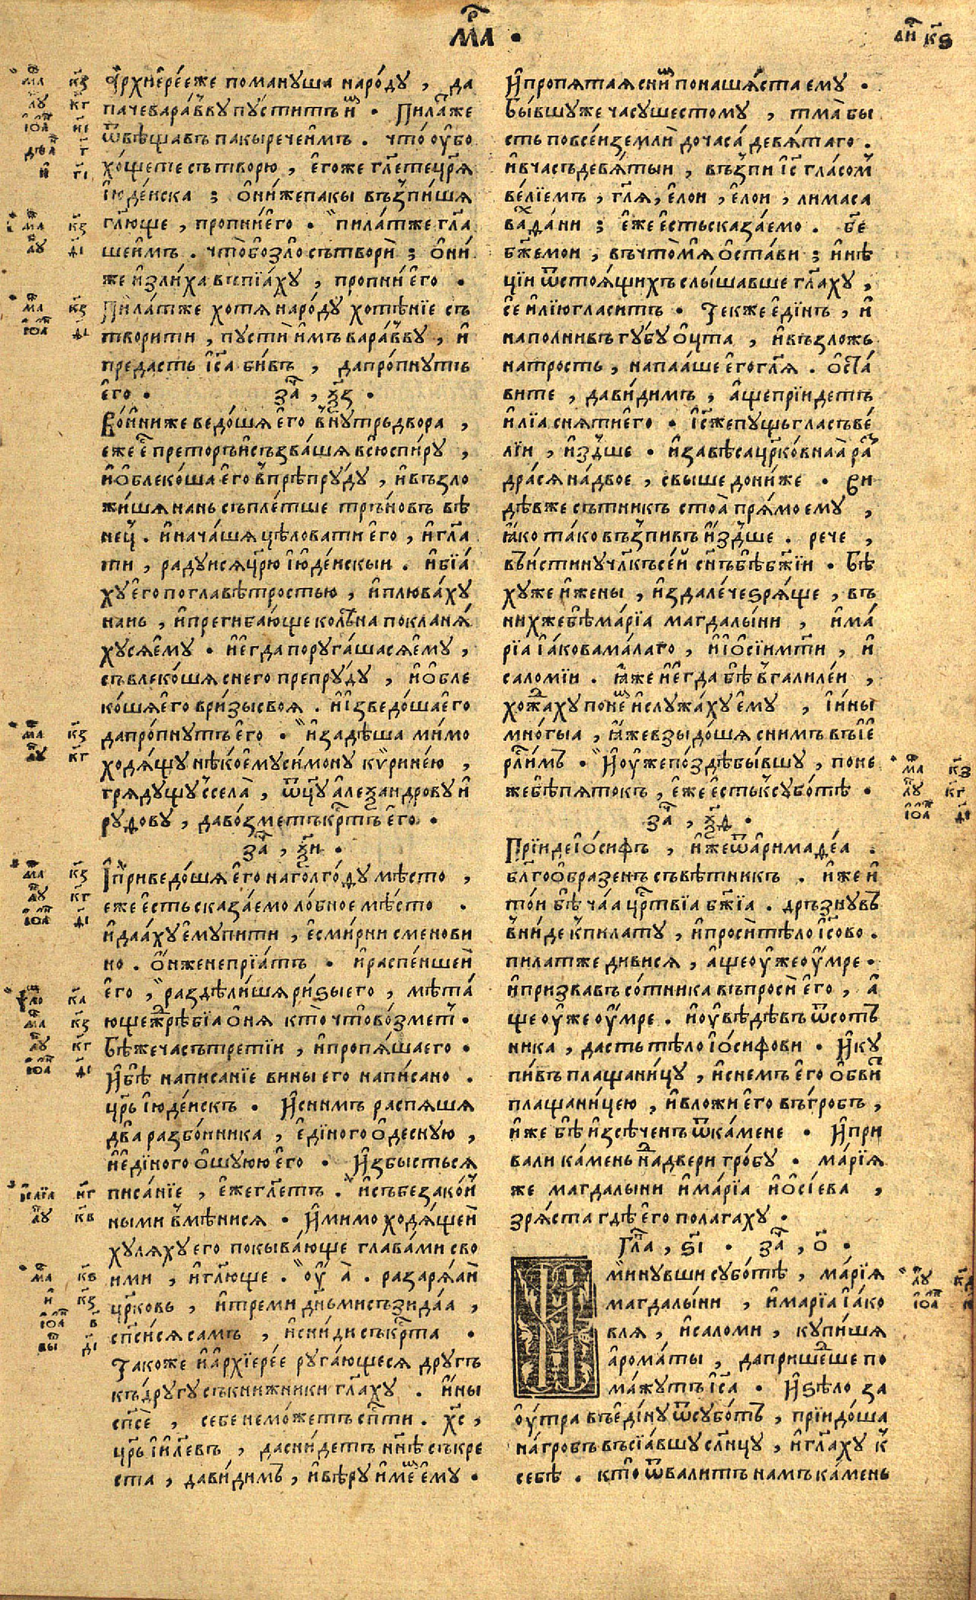 МР҃А .
Архиерее же помануша народу , да
паче варавву пустить и҆м . Пила҃ же
ѿвѣщавъ пакы рече имъ . что убо
хощете сътворю , егоже гл҃ете цр҃я
Июдейска ; они же пакы възпишя
гл҃юще , пропни его . пилат же гл҃а
ше имъ . что бо зло сътвори ; они
же излиха въпіаху , пропни его .
Пилат же хотя народу хотѣніе съ
творити , пусти имъ варавву , и
предасть іс҃а бивъ , да пропнуть
его . за҃ , ѯ҃з .
Воини же ведошя его внутрь двора ,
еже е҃ преторъ и съзвашя всю спиру ,
и облекоша его в препруду , и възло
жишя нань съплетше трьновъ вѣ
нец . и начашя цѣловати его , и гл҃а
ти , радуися цр҃ю июдейскыи . и біа
ху его по главѣ тростью , и плюваху
нань , и прегибающе колѣна покланя
хуся ему . и егда поругашася ему ,
съвлекошя с него препруду , и обле
кошя его в ризы своя . и изведоша его
да пропнуть его . и задѣша мимо
ходящу нѣкоему симону кѵринею ,
грядущу с села , ѿцу алеѯандрову и
рудову , да возметь кр҃тъ его .
за҃ , ѯ҃и .
И приведошя его на голгоѳу мѣсто ,
еже есть сказаемо лобное мѣсто .
и даяху ему пити , есмирни смено ви
но . он же не пріатъ . и распеншеи
его , раздѣлишя ризы его , мѣта
юще жребіа о ня кто что возмет .
Бѣ же час ътретіи , и пропяша его .
И бѣ написаніе вины его написано .
цр҃ь июдейскъ . И с нимъ распяшя
два разбойника , единого одесную ,
и единого ошуюю его . И збысться
писаніе , еже гл҃еть . и съ безакон
ными вмѣнися . И мимо ходящеи
хуляху его покывающе главами сво
ими , и гл҃юще . оу҆ а . разаряаи
цр҃ковь , и треми дн҃ьми съзидаа ,
сп҃сися самъ , и сниди съ кр҃та .
Такоже и архіерее ругающеся другъ
къ другу съ книжники гл҃аху . ины
сп҃се , себе не можетъ сп҃ти . хс҃ ,
цр҃ь ии҃левъ , да снидеть нн҃ѣ съ кре
ста , да видимъ , и вѣру имем ему .
И пропятая с ним поношяста ему .
Бывшу же часу шестому , тма бы
сть по всеи земли до часа девятаго .
и в час ъдевятыи , възпи іс҃ гласом
веліемъ , гл҃я , елои , елои , лима са
вахдани ; еже есть сказаемо . бе҃
бж҃е мои , въ что мя остави ; и нѣ
ціи ѿ стоящихъ слышавше гл҃аху ,
се илію гласитъ . Тек же единъ , и
наполнивъ губу оцта , и възложь
на трость , напааше его гл҃я . оста
вите , да видимъ , аще пріидеть
иліа сняти его . іс҃ же пущь гласъ ве
ліи , издше . и завѣса цр҃ковнаа ра
драся на двое , свыше до ниже . Ви
дѣв же сътникъ стоа прямо ему ,
яко тако възпивъ издше . рече ,
въистину чл҃къ сеи сн҃ъ бѣ бж҃іи . Бѣ
ху же и жены , издалече зряще , въ
них же бѣ маріа магдалыни , и ма
ріа іаковамалаго , и іосіи мт҃и , и
саломіи . яже и егда бѣ в галилеи ,
хождаху по нем и служаху ему , і ины
многыа , яже взыдошя с нимъ въ іе
рл҃имъ . И уже поздѣ бывшу , поне
же бѣ пятокъ , еже есть к суботѣ .
за҃ , ѯ҃д .
Пріиде іосифъ , иже ѿ аримадеа .
бл҃гообразенъ съвѣтникъ . иже и
тои бѣ чаа цр҃твіа бж҃іа . дръзнувъ
вниде к пилату , и проси тѣло іс҃ово .
пилат же дивися , аще уже умре .
и призвавъ сотника въпроси его , а
ще уже умре . и увѣдѣвъ ѿ сотъ
ника , дасть тѣло іосифови . И ку
пивъ плащаницу , и снемъ его обви
плащаницею , и вложи его въ гробъ ,
иже бѣ изсѣченъ ѿ камене . И при
вали камень над двери гробу . маріа
же магдалыни и маріа иосіева ,
зряста гдѣ его полагаху .
Гл҃а , ѕ҃і . за҃ , о҃ .
Минувши суботѣ , маріа
магдалыни , и маріа іако
вля , и саломи , купишя
ароматы , да пришедше по
мажуть іс҃а . И ѕѣло за
оутра въ едину ѿ суботъ , пріидоша
на гробъ въсіавшу сл҃нцу , и гл҃аху к
себѣ . кто ѿвалитъ намъ камень